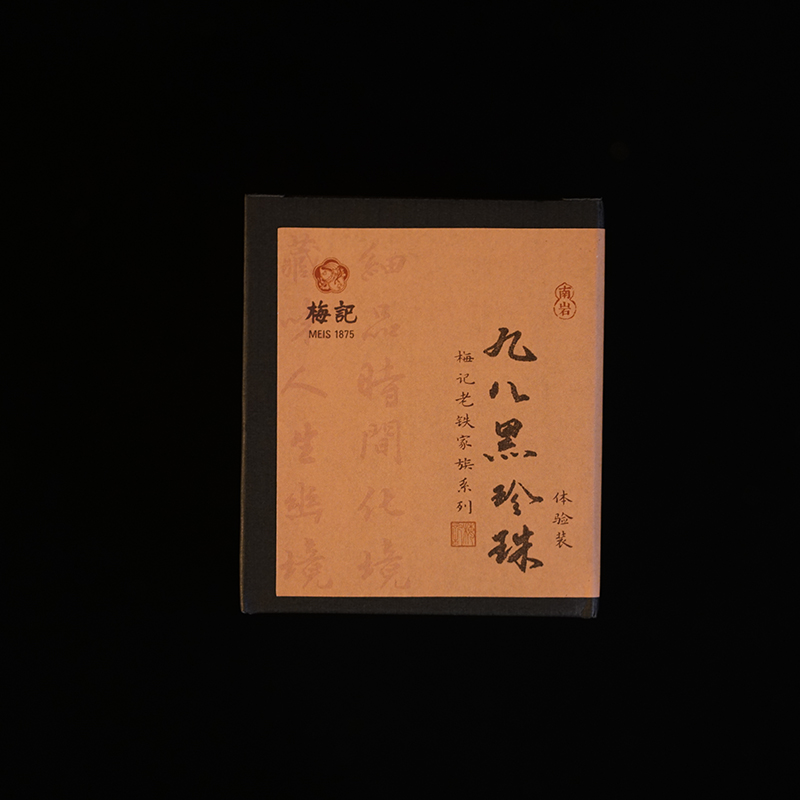 梅記
MEIS 1875
南岩
九八黑珍珠
梅记老铁家族系列
体验装
細品時間化境
藏吟人生幽境